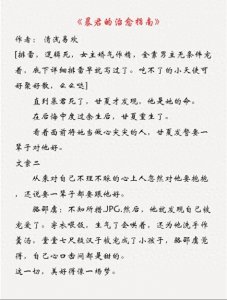 《暴君的治愈指南》
作者： 清浅易欢
[排雷，逻辑死，女主娇气作精，全素男主无条件宠
着，底下详细排雷章就写过了。吃不了的小天使可
好聚好散，么么哒]
直到暴君死了，甘夏才发现，他是她的命。
在后悔中度过余生后，甘夏重生了。
看着面前将她当做心尖尖的人，甘夏发誓要一
辈子对他好。
文案二
从来对自己不理不睬的心上人忽然对他要抱抱
，还说要一辈子都要跟他好。
骆邵虞：不知所措JPG.然后，他就发现自己被
宠爱了。穿衣喂饭，生气了会哄着，还为他洗手作
羹汤，堂堂七尺糙汉子被宠成了小孩子，骆邵虞觉
得，自己心口齿间都是甜的。
这一切，美好得像一场梦。